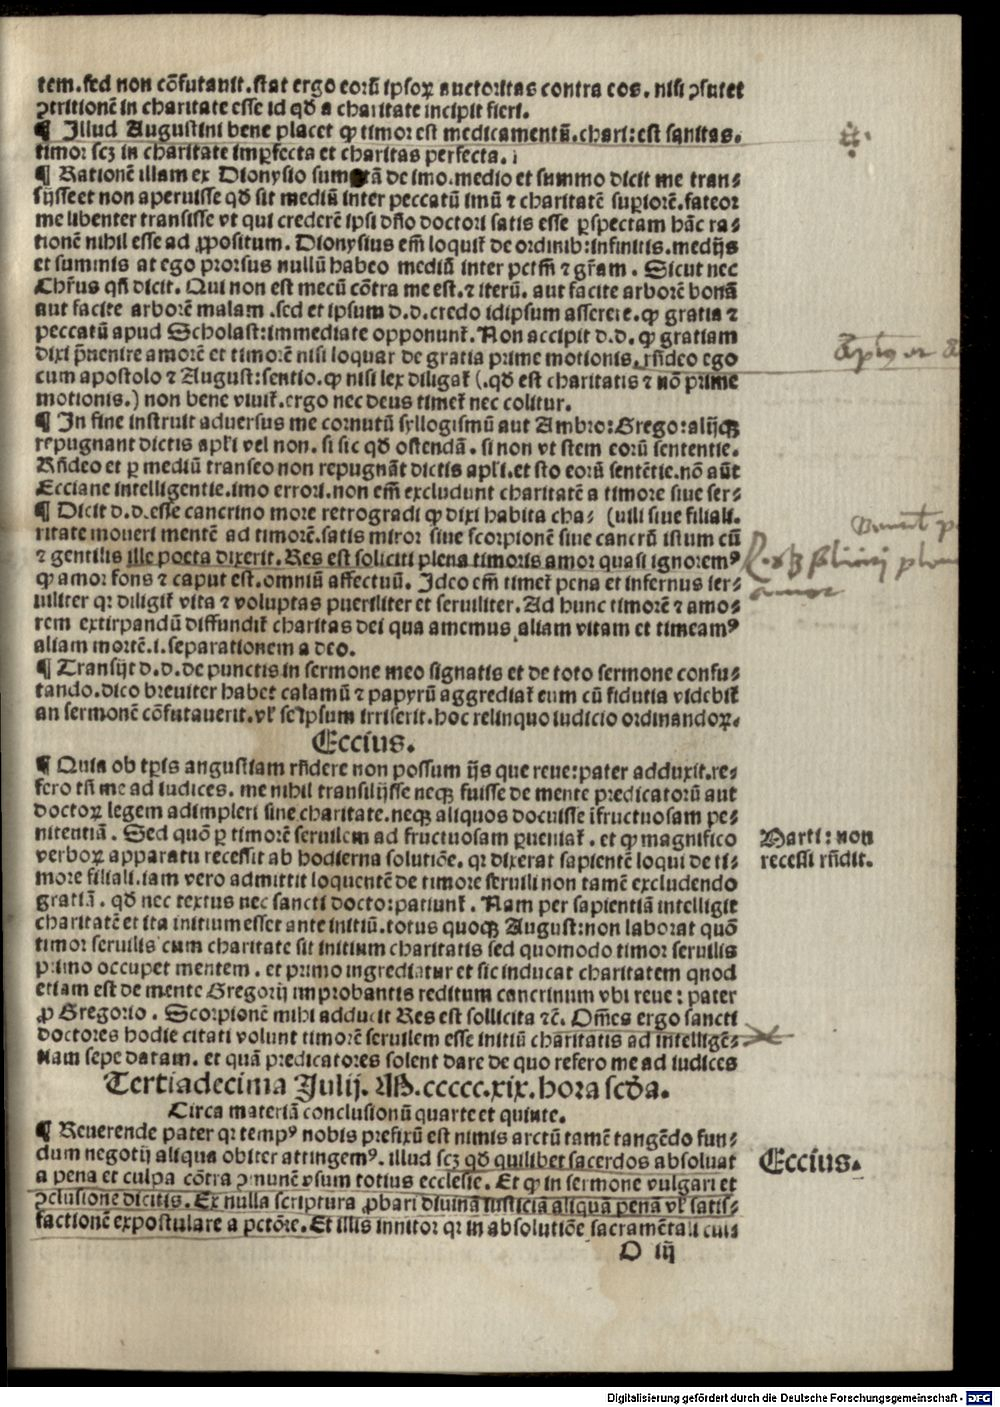 tem.sed non cõfutanit.stat ergo eorũ ipsoꝝ auctoritas contra eos.nisi ꝓsutet
ꝯtritionẽ in charitate esse id qð a charitate incipit fieri.
¶ Illud Augustini bene placet ꝙ timor est medicamentũ.chari:est sanitas.
timor scꝫ in charitate imꝑfecta et charitas perfecta.
¶ Rationẽ illam ex Dionysio sumptã de imo.medio et summo dicit me tran⸗
sijsse et non aperuisse qð sit mediũ inter peccatũ imũ ⁊ charitatẽ suꝑiorẽ.fateor
me libenter transisse vt qui crederẽ ipsi dño doctori satis esse ꝑspectam hãc ra⸗
tionẽ nihil esse ad ꝓpositum. Dionysius em̃ loquit᷑ de ordinib:infimis.medijs
et summis at ego prorsus nullũ habeo mediũ inter pctm̃ ⁊ gr̃am. Sicut nec
Chr̃us qñ dicit. Qui non est mecũ cõtra me est.⁊ iterũ. aut facite arborẽ bonã
aut facite arborẽ malam.sed et ipsum d.d.credo idipsum asserere.ꝙ gratia ⁊
peccatũ apud Scholast:immediate opponunt᷑. Non accipit d.d. ꝙ gratiam
dixi p̃uenire amorẽ et timorẽ nisi loquar de gratia prime motionis.rñdeo ego
cum apostolo ⁊ August:sentio.ꝙ nisi lex diligat᷑ (.qð est charitatis ⁊ nõ prime
motionis.) non bene viuit᷑.ergo nec deus timet᷑ nec colitur.
¶ In fine instruit aduersus me cornutũ syllogismũ aut Ambro:Grego:alijqꝫ
repugnant dictis apl'i vel non. si sic qð ostendã. si non vt stem eorũ sententie.
Rñdeo et ꝑ mediũ transeo non repugnãt dictis apl'i.et sto eorũ sentẽtie.nõ aũt
Ecciane intelligentie.imo errori.non em̃ excludunt charitatẽ a timore siue ser⸗
¶ Dicit d.d.esse cancrino more retrogradi ꝙ dixi habita cha⸗ (uili siue filiali.
ritate moueri mentẽ ad timorẽ.satis miror siue scorpionẽ siue cancrũ istum cũ
⁊ gentilis ille poeta dixerit. Res est soliciti plena timoris amor quasi ignoremꝰ
ꝙ amor fons ⁊ caput est.omniũ affectuũ. Ideo em̃ timet᷑ pena et infernus ser⸗
uiliter qr diligit᷑ vita ⁊ voluptas pueriliter et seruiliter. Ad hunc timorẽ ⁊ amo⸗
rem extirpandũ diffundit᷑ charitas dei qua amemus aliam vitam et timeamꝰ
aliam mortẽ.i.separationem a deo.
¶ Transijt d.d.de punctis in sermone meo signatis et de toto sermone confu⸗
tando.dico breuiter habet calamũ ⁊ papyrũ aggrediat᷑ eum cũ fidutia videbit᷑
an sermonẽ cõfutauerit.vl̕ seip̃sum irriserit.hoc relinquo iudicio ordinandoꝝ.
Eccius.
¶ Quia ob tp̃is angustiam rñdere non possum ijs que reue:pater adduxit.re⸗
fero tñ me ad iudices. me nihil transilijsse neqꝫ fuisse de mente predicatorũ aut
doctoꝝ legem adimpleri sine charitate.neqꝫ aliquos docuisse ĩfructuosam pe⸗
nitentiã. Sed quõ ꝑ timorẽ seruilem ad fructuosam ꝑueniat᷑. et ꝙ magnifico
verboꝝ apparatu recessit ab hodierna solutiõe. qr dixerat sapientẽ loqui de ti⸗
more filiali.iam vero admittit loquentẽ de timore seruili non tamẽ excludendo
gratiã. qð nec textus nec sancti doctor:patiunt᷑. Nam per sapientiã intelligit
charitatẽ et ita initium esset ante initiũ.totus quoqꝫ August:non laborat quõ
timor seruilis cum charitate sit initium charitatis sed quomodo timor seruilis
primo occupet mentem. et primo ingrediatur et sic inducat charitatem quod
etiam est de mente Gregorij improbantis reditum cancrinum vbi reue: pater
ꝓ Gregorio. Scorpionẽ mihi adducit Res est sollicita ⁊c̃. Om̃es ergo sancti
doctores hodie citati volunt timorẽ seruilem esse initiũ charitatis ad intelligẽ⸗
tiam sepe datam. et quã predicatores solent dare de quo refero me ad iudices
Marti: non
recessi rñdit.
Tertiadecima Julij. M.ccccc.xix.hora scða.
Circa materiã conclusionũ quarte et quinte.
¶ Reuerende pater qr tempꝰ nobis prefixũ est nimis arctũ tamẽ tangẽdo fun⸗
dum negotij aliqua obiter attingemꝰ. illud scꝫ qð quilibet sacerdos absoluat
a pena et culpa cõtra ꝯmunẽ vsum totius ecclesie. Et ꝙ in sermone vulgari et
ꝯclusione dicitis. Ex nulla scriptura ꝓbari diuinã iusticiã aliquã penã vl̕ satis⸗
factionẽ expostulare a pctõre. Et illis innitor qr in absolutiõe sacramẽtali cui⸗
Eccius.
D iij
Digitalisierung gefördert durch die Deutsche Forschungsgemeinschaft - DFG